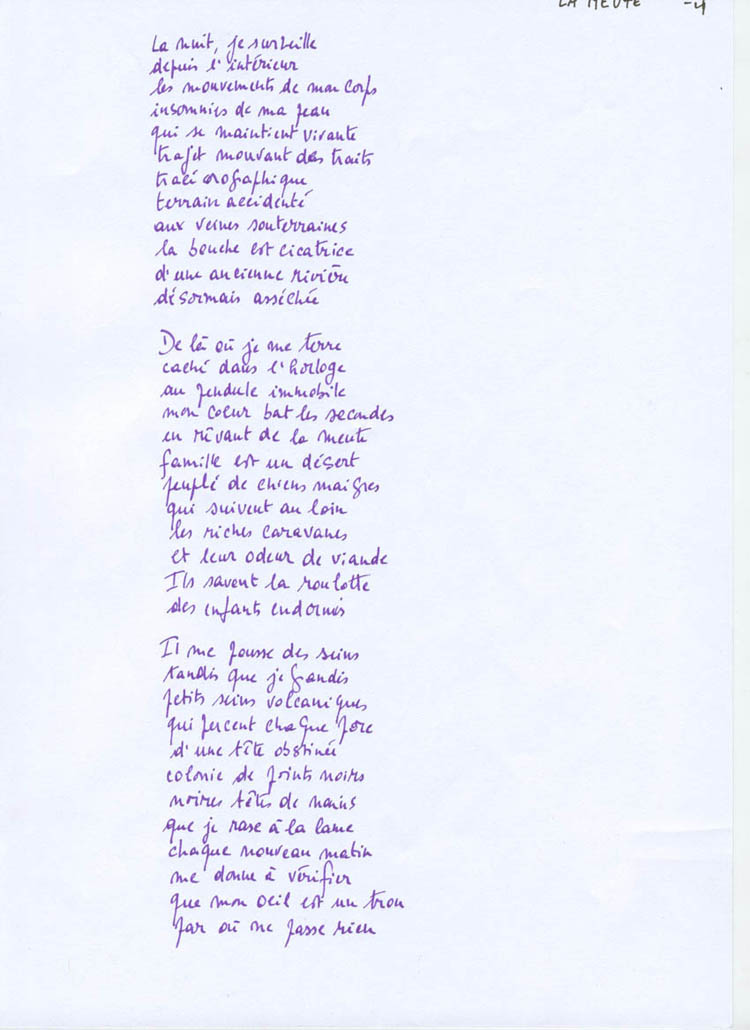 LA MEUTE -4
La nuit, je surveille
depuis l'intérieur
les mouvements de mon corps
insomnies de ma peau
qui se maintient vivante
trajet mouvant des traits
tracé orographique
terrain accidenté
aux veines souterraines
la bouche est cicatrice
d'une ancienne rivière
désormais asséchée
De là où je me terre
caché dans l'horloge
au pendule immobile
mon coeur bat les secondes
en rêvant de la meute
famille est un désert
peuplé de chiens maigres
qui suivent au loin
les riches caravanes
et leur odeur de viande
Ils savent la roulotte
des enfants endormis
Il me pousse des seins
tandis que je grandis
petits seins volcaniques
qui percent chaque pore
d'une tête obstinée
colonie de points noirs
noires têtes de nains
que je rase à la lame
chaque nouveau matin
me donne à vérifier
que mon oeil est un trou
par où ne passe rien